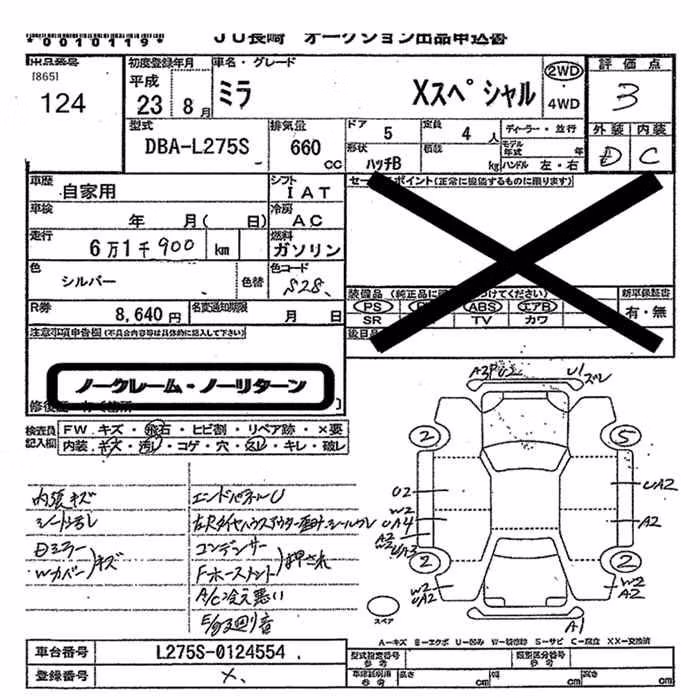 *0010119*
JU長崎 オークション出品申込書
出品番号
[865]
124
初度登録年月
平成
23 8月
車名・グレード
ミラ Xスペシャル
2WD
4WD
評価点
3
外装 内装
D C
型式
DBA-L275S
排気量
660
CC
ドア 5
定員 4 人
ディーラー・並行
形状
ハッチB
積載 kg
モデル年式 年
ハンドル 左・右
車歴
自家用
シフト
IAT
車検
年 月( 日)
冷房
AC
走行
6万1千900 km
燃料
ガソリン
色
シルバー
色替
色コード
S28
R券
8,640円
名変通知期限
月 日
セールスポイント(正常に機能するものに限ります)
PS
ABS
エアB
SR
TV
カワ
新車保証書
有・無
後日品
注意事項申告欄(不具合内容等は具体的に記入して下さい)
ノークレーム・ノーリターン
検査員
記入欄
FW. キズ・飛石・ヒビ割・リペア跡・×要
内装. キズ・汚レ・コゲ・穴・スレ・キレ・破レ
内張キズ
シート汚レ
Dミラー
Wカバー
キズ
エンドパネルU
コンデンサー
押され
A/C冷え悪い
A3
U1
ズレ
2
5
U2
UA2
W2
UA4
A2
A2
W2
UA3
2
2
W2
UA2
W2
A2
スペア
A1
A-キズ E-エクボ U-凹み W-補修跡 S-サビ C-腐立 XX-交換済
車台番号
L275S-0124554
登録番号
×.
型式指定番号
参考
類別区分番号
参考
高さ cm
幅 cm
高さ cm